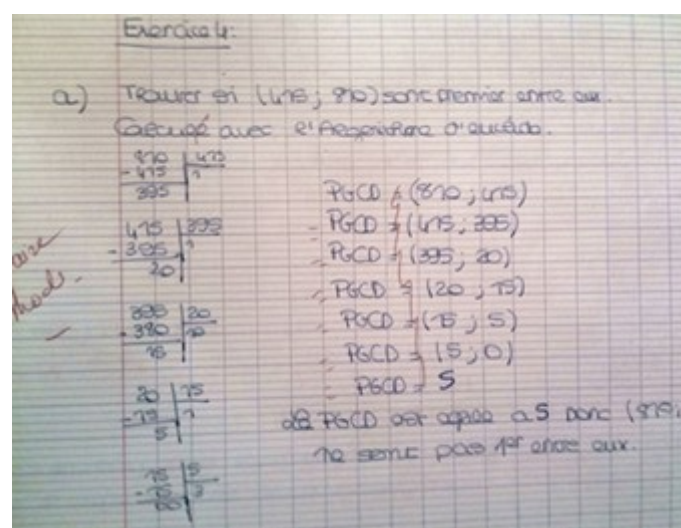 Exercice 4:
a) Trouver si (475; 870) sont premier entre eux.
avec l'Algorithme d'euclide.
870 | 475
- 475 | 1
395
475 | 395
- 395 | 1
20
395 | 20
- 380
15
20 | 15
- 15 | 1
5
15 | 5
PGCD (870; 475)
PGCD = (475; 395)
PGCD = (395; 20)
PGCD = (20; 15)
PGCD = (15; 5)
PGCD = (5; 0)
PGCD = 5
PGCD est a 5 donc (870;
ne sont pas 1er entre eux.